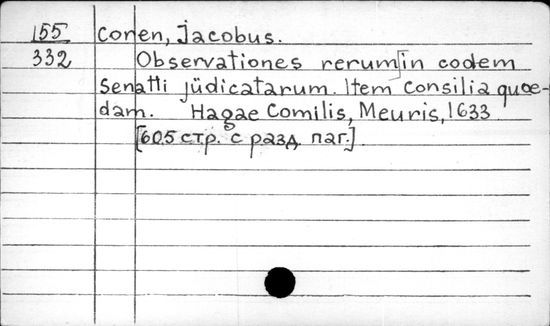 155 Coren, Jacobus.
332 Observationes rerum in codem
Senatti jüdicatarum. Item consilia quoe-
dam. Hagae Comilis, Meuris, 1633
[605 стр. с разд. паг.].